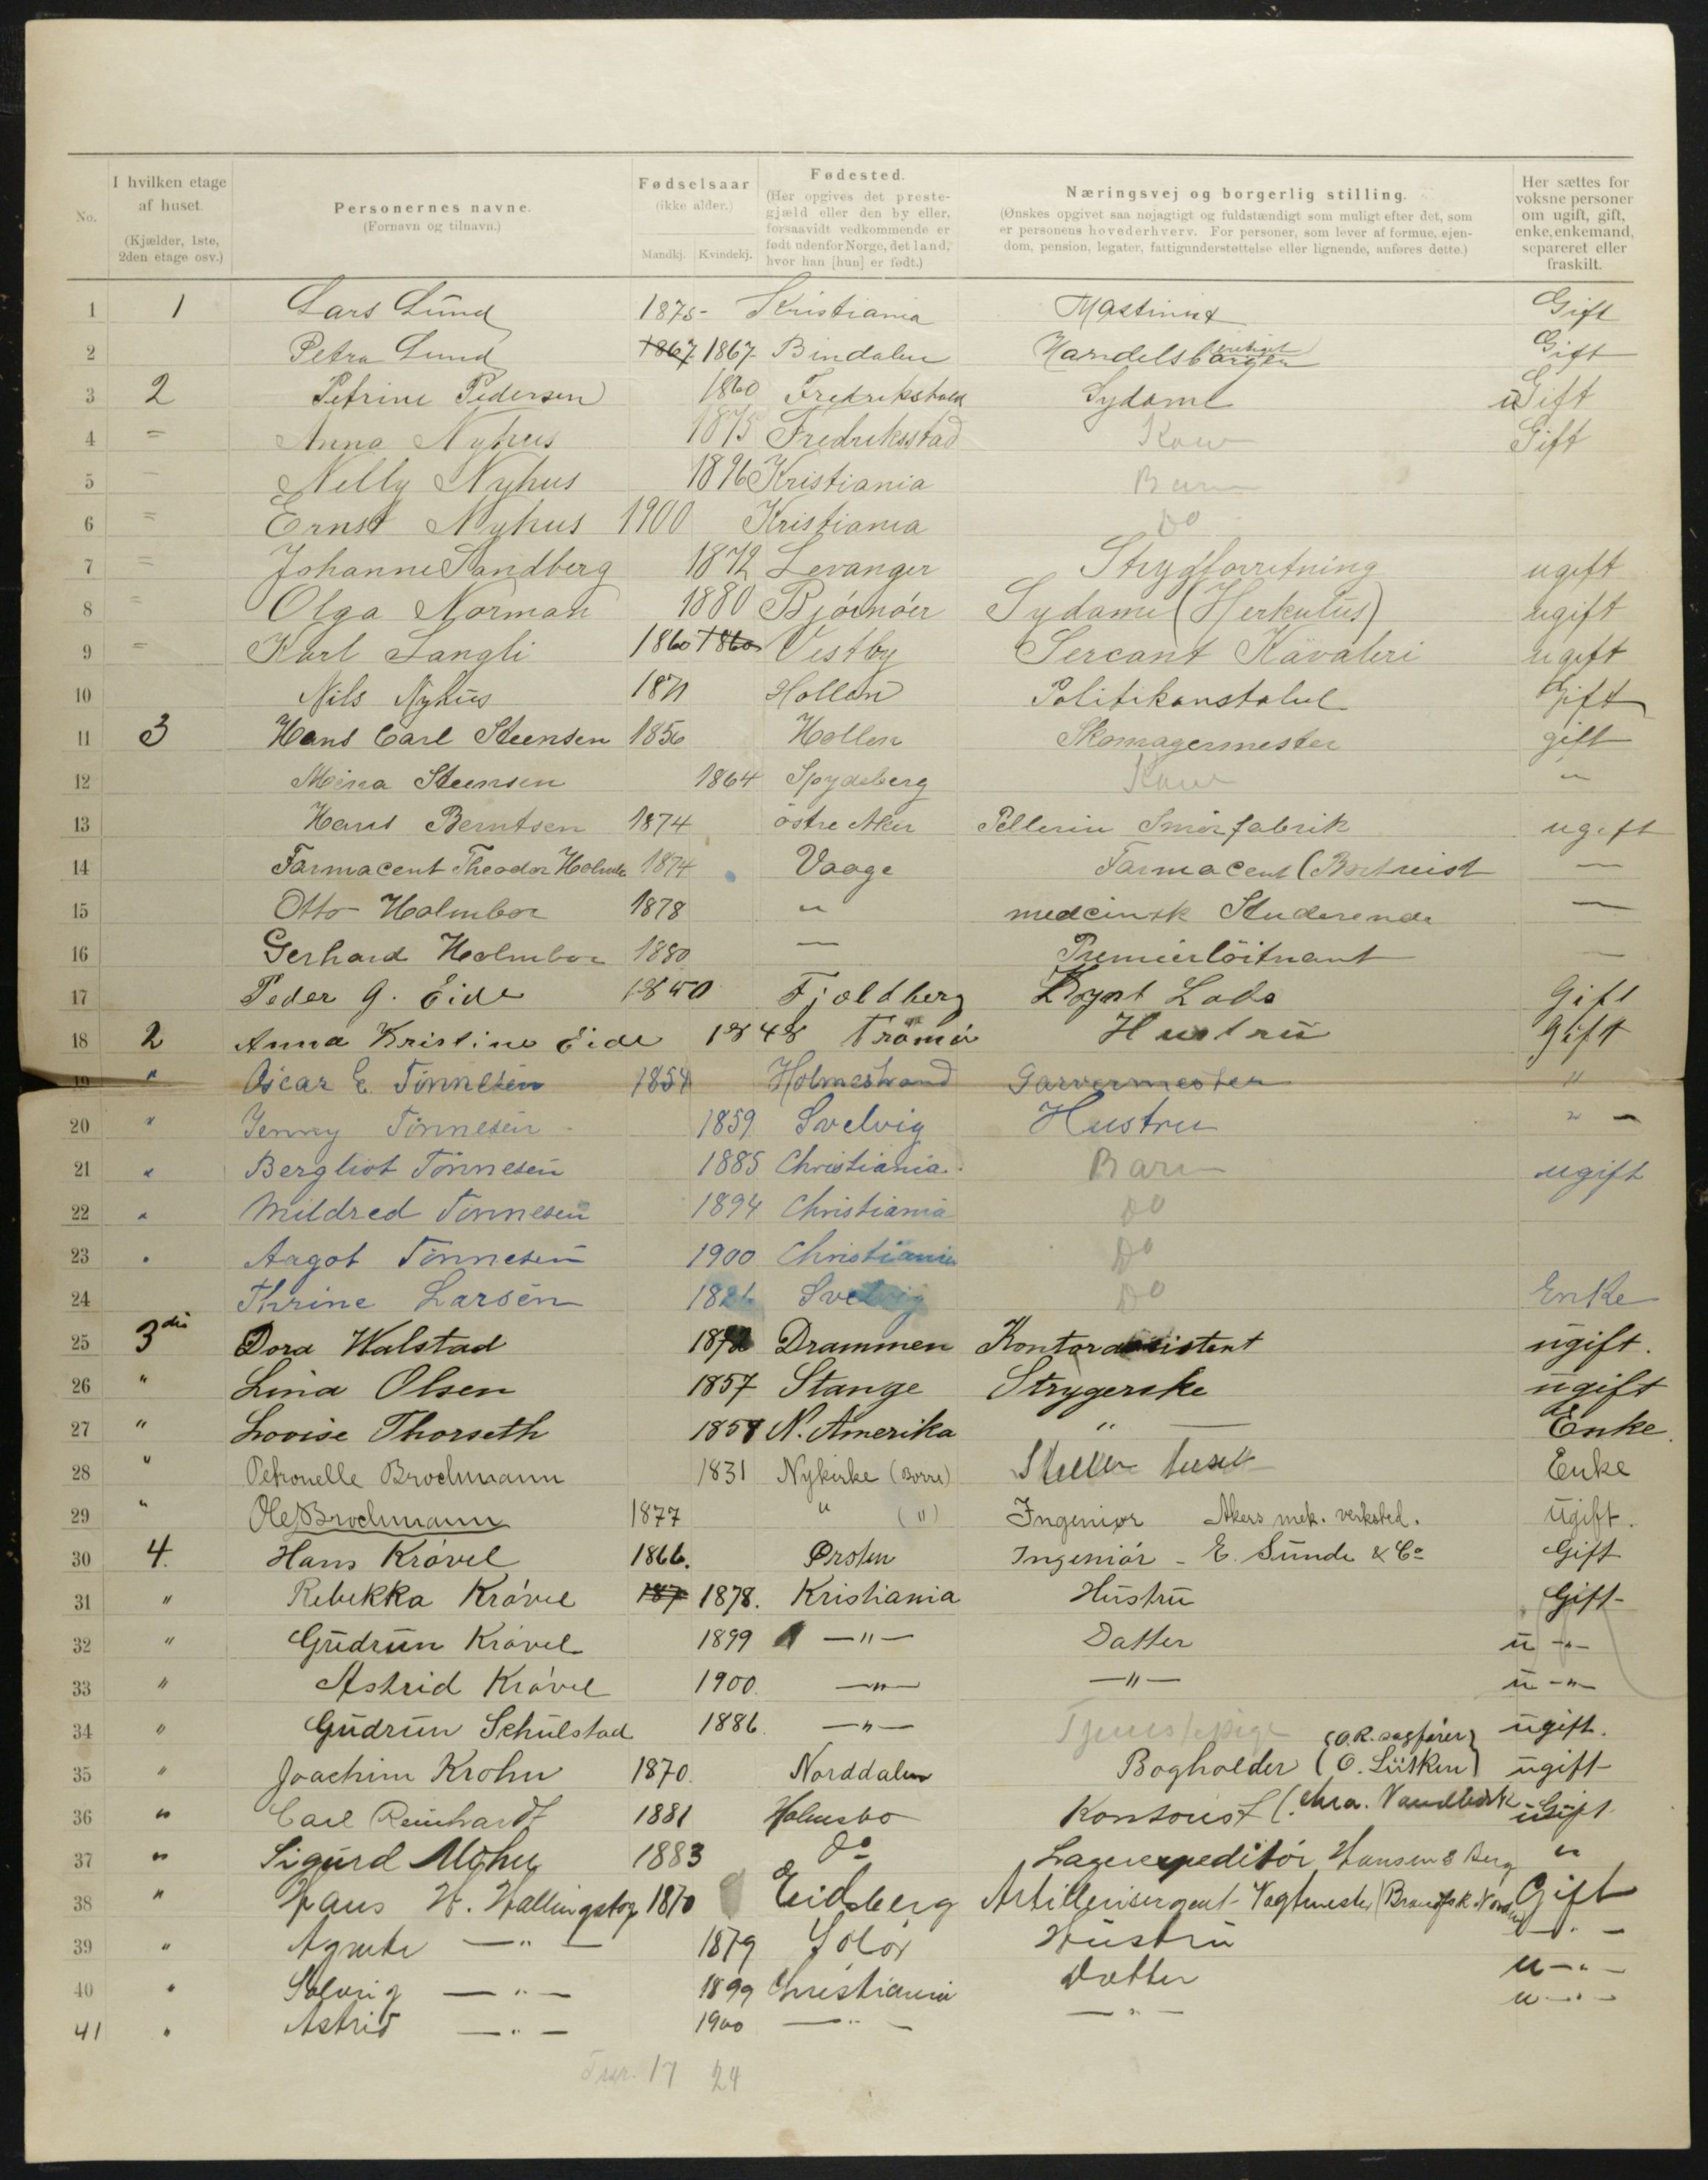 No.
I hvilken etage af huset. (Kjælder, 1ste, 2den etage osv.)
Personernes navne. (Fornavn og tilnavn.)
Fødselsaar (ikke alder.) Mandkj. Kvindekj.
Fødested. (Her opgives det prestegjæld eller den by eller, forsaavidt vedkommende er født udenfor Norge, det land, hvor han [hun] er født.)
Næringsvej og borgerlig stilling. (Ønskes opgivet saa nøjagtigt og fuldstændigt som muligt efter det, som er personens hovederhverv. For personer, som lever af formue, ejendom, pension, legater, fattigunderstøttelse eller lignende, anføres dette.)
Her sættes for voksne personer om ugift, gift, enke, enkemand, separeret eller fraskilt.
1 1 Lars Lund 1875 Kristiania Maskinist Gift
2 Petra Lund 1867 1867 Bindalen Handelsborgen Gift
3 2 Petrine Pedersen 1860 Fredrikshald Sydame uGift
4 = Anna Nyhus 1875 Fredriksstad Kone Gift
5 – Nelly Nyhus 1896 Kristiania Barn
6 = Ernst Nyhus 1900 Kristiania Do
7 = Johanne Sandberg 1872 Levanger Strygforretning ugift
8 = Olga Norman 1880 Bjørnøer Sydame (Herkulus) ugift
9 = Karl Langli 1860 1860 Vestby Sercant Kavaleri ugift
10 Nils Nyhus 1871 Hollen Politikonstabel Gift
11 3 Hans Carl Steensen 1856 Hollen Skomagermester gift
12 Mina Steensen 1864 Spydeberg Kone "
13 Hans Berntsen 1874 østre Aker Pellerin Smørfabrik ugift
14 Farmacent Theodor Holmboe 1874 Vaage Farmacent (Bortreist —
15 Otto Holmboe 1878 " medcinsk Studerende —
16 Gerhard Holmboe 1880 — Premierløitnant —
17 Peder G. Eide 1850 Fjeldberg Lods Gift
18 2 Anna Kristine Eide 1848 Tromø Hustru Gift
19 " Oscar E. Tønnesen 1854 Holmestrand Garvermester "
20 " Jenny Tønnesen 1859 Svelvig Hustru " –
21 " Bergliot Tønnesen 1885 Christiania Barn ugift
22 " Mildred Tønnesen 1894 Christiania Do
23 " Aagot Tønnesen 1900 Christiania Do
24 Thrine Larsen Svelvig Do Enke
25 3die Dora Walstad Drammen Kontorassistent ugift.
26 " Lina Olsen 1857 Stange Strygerske ugift
27 " Lovise Thorseth 1858 N. Amerika " — Enke.
28 " Petronelle Brochmann 1831 Nykirke (Borre) Enke
29 " Ole Brochmann 1877 " (") Ingeniør Akers mek. verksted. Ugift.
30 4. Hans Krøvel 1866. Ørsten Ingeniør - E. Sunde & Co Gift
31 " Rebekka Krøvel 187 1878. Kristiania Hustru Gift
32 " Gudrun Krøvel 1899 — " — Datter u - " -
33 " Astrid Krøvel 1900. — " — — " — u - " -
34 " Gudrun Schulstad 1886. — " — Tjenestepige ugift.
35 " Joachim Krohn 1870. Norddalen Bogholder (O.R. sagfører) (O. Lütken) ugift
36 " Carl Reinhardt 1881 Holmsbo Kontorist (Chra. ugift
37 " Sigurd Mohn 1883 Do Lagerexpeditør Hansen & Berg "
38 " Hans H. 1870 Eidsberg Artillerisergent - Vagtmester Gift
39 " Agnete — " — 1879 Solør Hustru — " —
40 " Solveig — " — 1899 Christiania Datter u - " -
41 " Astrid — " — 1900 — " — — " — u - " -
17 24